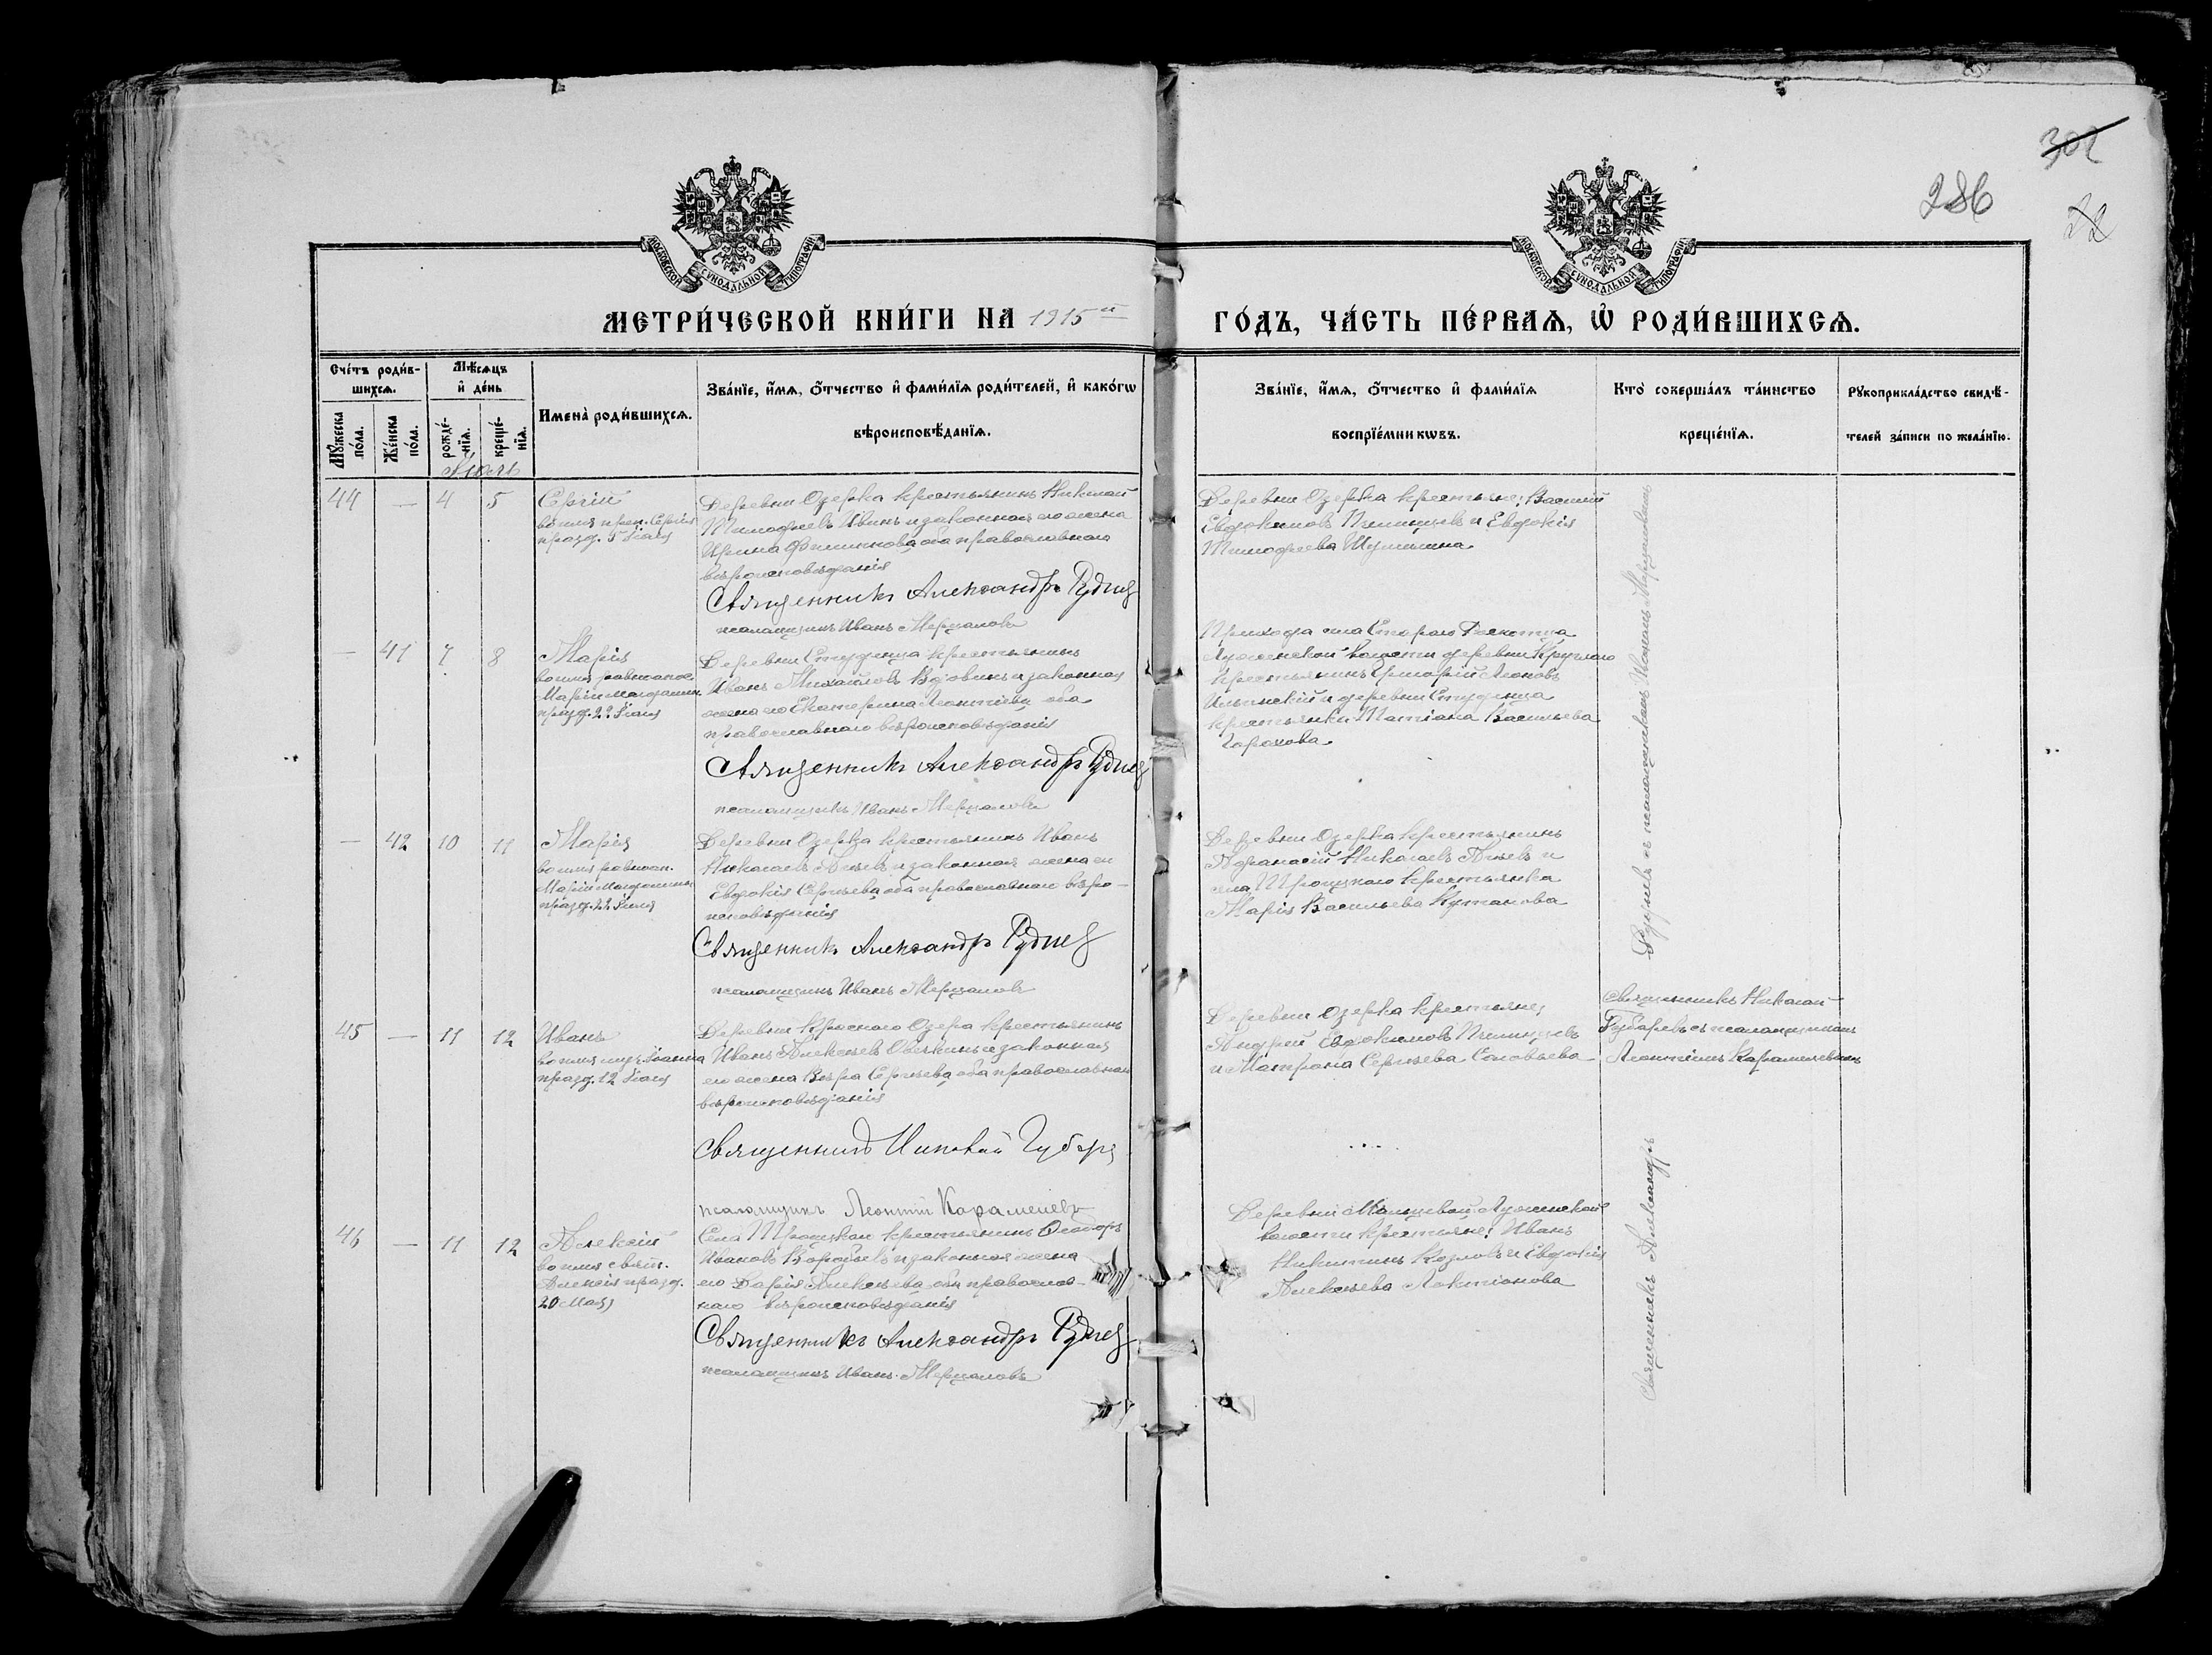 302
286
22
МОСКОВСКОЙ СѴНОДАЛЬНОЙ ТИПОГРАФІИ
МОСКОВСКОЙ СѴНОДАЛЬНОЙ ТИПОГРАФІИ
МЕТРИ́ЧЕСКОЙ КНИ́ГИ НА 1915й ГО́ДЪ, ЧА́СТЬ ПЕ́РВАѦ, Ѡ҆ РОДИ́ВШИХСѦ.
Сче́тъ роди́в-
шихсѧ.
Мꙋ́жеска по́ла.
Же́нска по́ла.
Мѣ́сѧцъ и҆ де́нь
рожде́-нїѧ.
креще́-нїѧ.
Имена̀ роди́вшихсѧ.
Зва́нїе, и҆́мѧ, о҆́тчество и҆ фами́лїѧ роди́телей, и҆ како́гѡ
вѣроисповѣ́данїѧ.
Зва́нїе, и҆́мѧ, о҆́тчество и҆ фами́лїѧ
воспрїе́мникѡвъ.
Кто̀ соверша́лъ та́инство
креще́нїѧ.
Рꙋкоприкла́дство свидѣ́-
телей за́писи по жела́нїю.
Іюль
44 — 4 5
Сергій
во имя преп. Сергія
празд. 5 Іюля
Деревни Озерка крестьянинъ Николай
Тимофеевъ Ивинъ и законная его жена
Ирина Филиппова, оба православнаго
вѣроисповѣданія
Священникъ Александръ Руднев
псаломщикъ Иванъ Мерцаловъ
Деревни Озерка крестьяне: Василій
Евдокимовъ Пшеницевъ и Евдокія
Тимофеева
— 41 7 8
Марія
во имя равноапос.
Маріи магдалин.
празд. 22 Іюля
Деревни Студенца крестьянинъ
Иванъ Михайловъ Вдовинъ и законная
жена его Екатерина Леонтіева, оба
православнаго вѣроисповѣданія
Священникъ Александръ Руднев
псаломщикъ Иванъ Мерцаловъ
Прихода села Стараго
Луженской волости деревни Круглаго
крестьянинъ Григорій Леоновъ
Ильинскій и деревни Студенца
крестьянка Татіана Васильева
— 42 10 11
Марія
во имя равноап.
Маріи магдалины
празд. 22 Іюля
Деревни Озерка крестьянинъ Иванъ
Николаевъ и законная жена его
Евдокія Сергѣева, оба православнаго вѣро-
исповѣданія
Священникъ Александръ Руднев
псаломщикъ Иванъ Мерцаловъ
Деревни Озерка крестьянинъ
Афанасій Николаевъ и
села Троицкаго крестьянка
Марія Васильева
45 — 11 12
Иванъ
во имя муч. Іоанна
празд. 12 Іюля
Деревни Краснаго Озера крестьянинъ
Иванъ Алексѣевъ Овечкинъ и законная
его жена Вѣра Сергѣева, оба православнаго
вѣроисповѣданія
Священникъ Николай Губарев
псаломщикъ Леонтій Карамелевъ
Деревни Озерка крестьяне,
Андрей Евдокимовъ Пшеницевъ
и Матрона Сергѣева Соловьева
Священникъ Николай
Губаревъ съ псаломщикомъ
Леонтіемъ Карамелевымъ
46 — 11 12
Алексій
во имя свят.
Алексія празд.
20 Мая
Села Троицкаго крестьянинъ Ѳеодоръ
Ивановъ Воробьевъ и законная жена
его Дарія Алексѣева, оба православ-
наго вѣроисповѣданія
Священникъ Александръ Руднев
псаломщикъ Иванъ Мерцаловъ
Деревни Мальцевой Луженской
волости крестьяне: Иванъ
Никитинъ Козловъ и Евдокія
Алексѣева Локтіонова
Священникъ Александръ
Рудневъ съ псаломщикомъ Иваномъ Мерцаловымъ